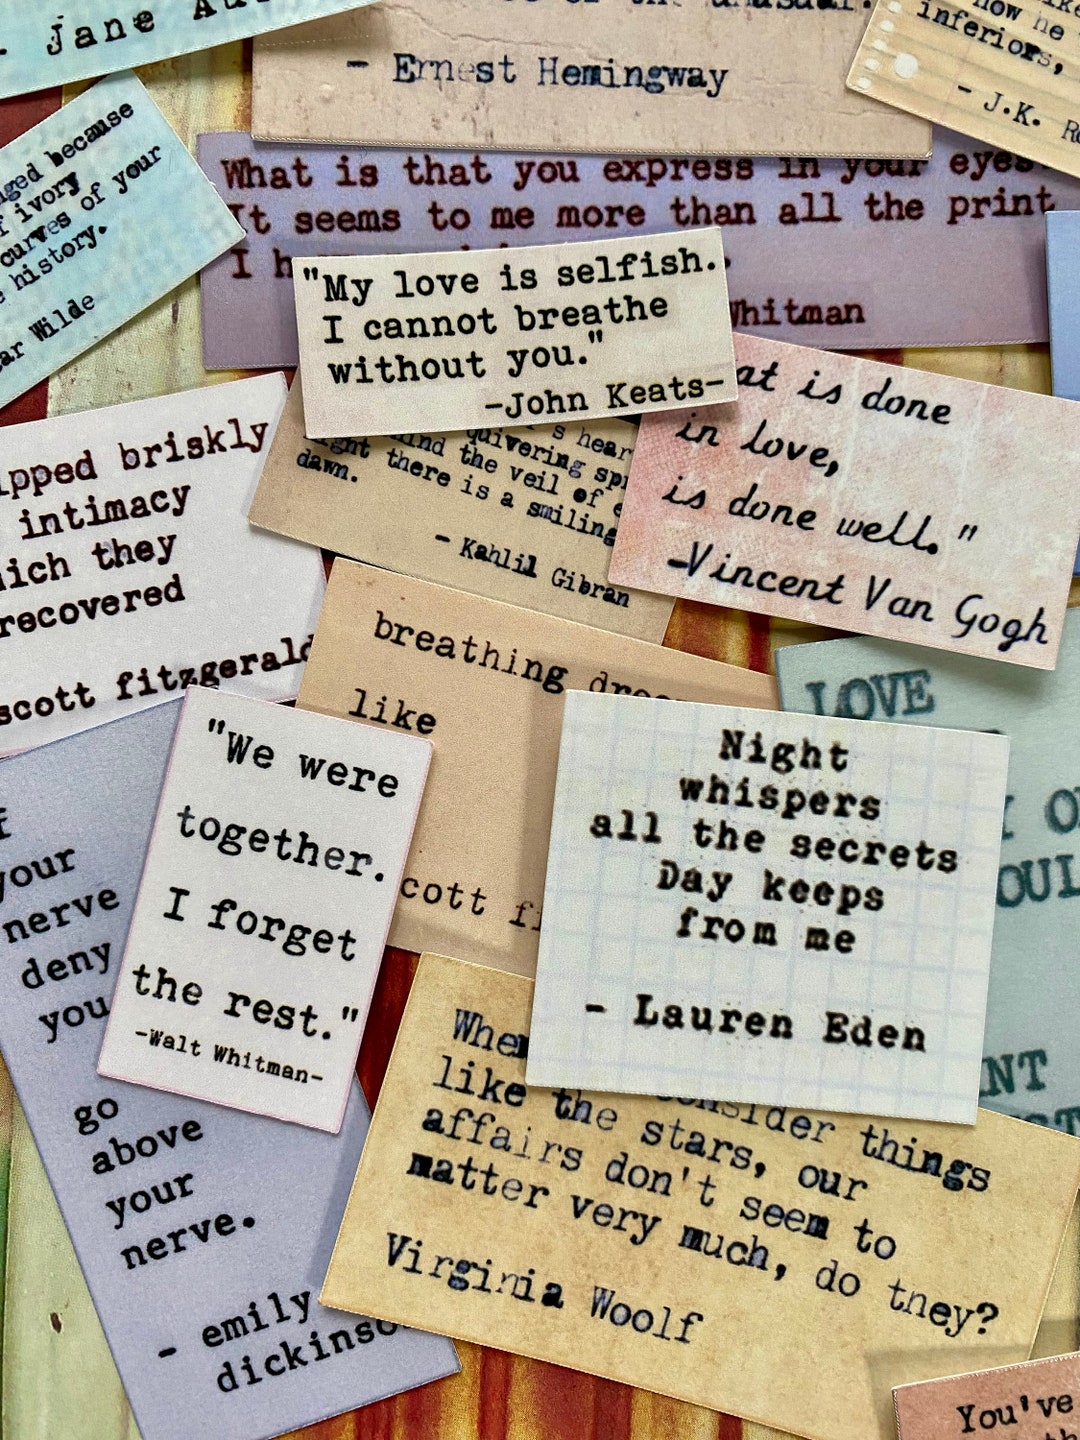 - Jane
- Ernest Hemingway
how he
inferiors,
- J.K.
because
ivory
curves of your
history.
Wilde
What is that you express in your eyes
It seems to me more than all the print
I
Whitman
"My love is selfish.
I cannot breathe
without you."
-John Keats-
is done
in love,
is done well."
-Vincent Van Gogh
quivering
the veil of
there is a smiling
dawn.
- Kahlil Gibran
briskly
intimacy
which they
recovered
scott fitzgerald
breathing
like
LOVE
"We were
together.
I forget
the rest."
-Walt Whitman-
Night
whispers
all the secrets
Day keeps
from me
- Lauren Eden
your
nerve
deny
you
go
above
your
nerve.
- emily
dickinson
When consider things
like the stars, our
affairs don't seem to
matter very much, do they?
Virginia Woolf
You've